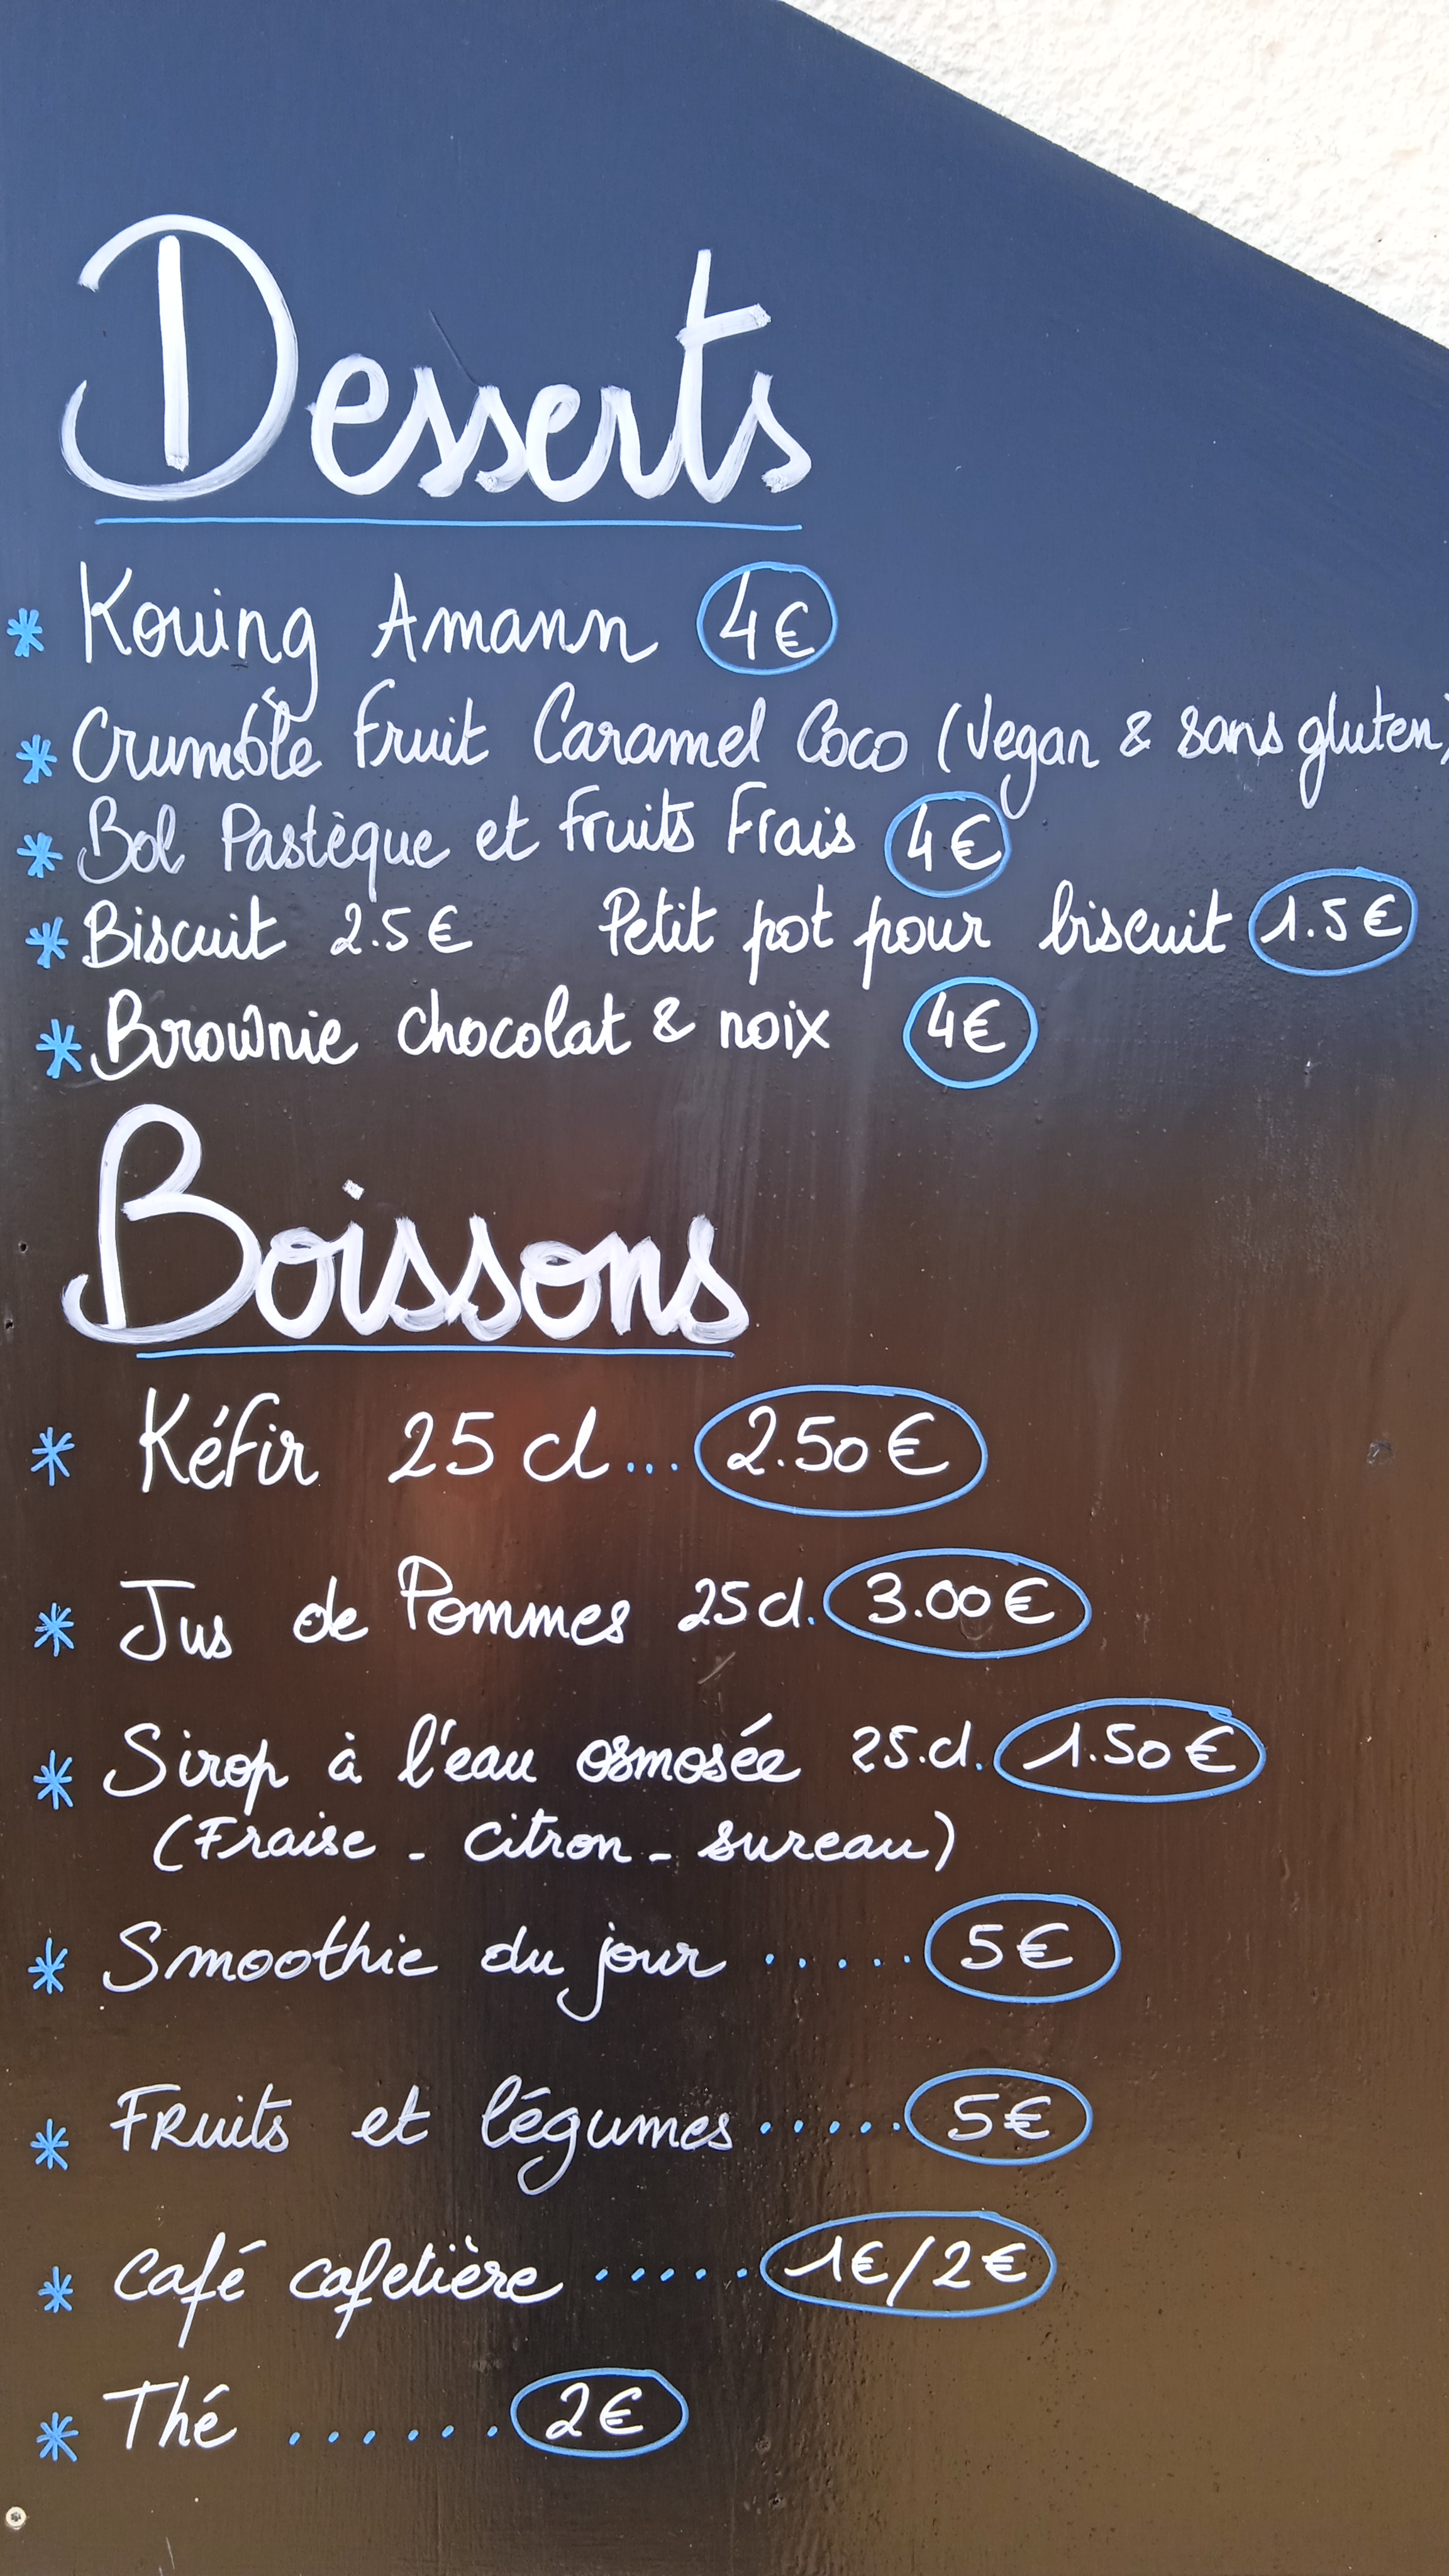 Desserts
* Kouing Amann 4€
* Crumble Fruit Caramel Coco (Vegan & sans gluten)
* Bol Pastèque et fruits Frais 4€
* Biscuit 2.5€ Petit pot pour biscuit 1.5€
* Brownie chocolat & noix 4€
Boissons
* Kéfir 25 cl... 2.50€
* Jus de Pommes 25cl. 3.00€
* Sirop à l'eau osmosée 25.cl. 1.50€
(Fraise - citron - sureau)
* Smoothie du jour ...... 5€
* FRuits et légumes ...... 5€
* Café cafetière ...... 1€/2€
* Thé ....... 2€